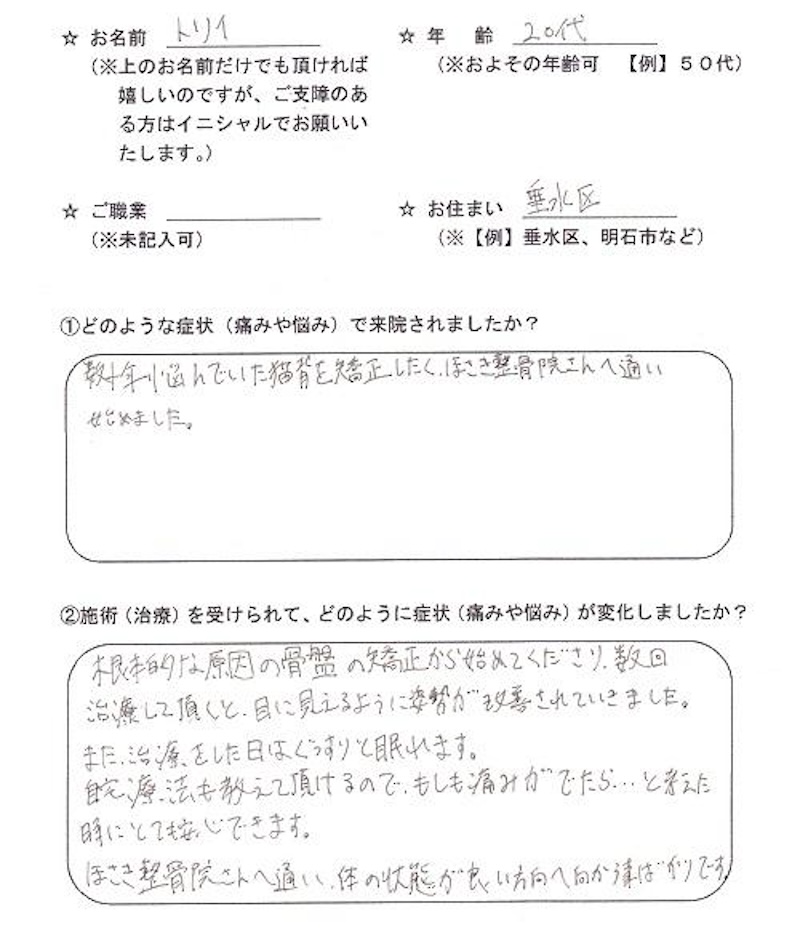 ☆ お名前 トリイ
☆ 年 齢 20代
（※上のお名前だけでも頂ければ
嬉しいのですが、ご支障のあ
る方はイニシャルでお願いい
たします。）
（※およその年齢可 【例】５０代）
☆ ご職業
（※未記入可）
☆ お住まい 垂水区
（※【例】垂水区、明石市など）
①どのような症状（痛みや悩み）で来院されましたか？
数十年悩んでいた猫背を矯正したく、ほさき整骨院さんへ通い
始めました。
②施術（治療）を受けられて、どのように症状（痛みや悩み）が変化しましたか？
根本的な原因の骨盤の矯正から始めてくださり、数回
治療して頂くと、目に見えるように姿勢が改善されていきました。
また、治療をした日はぐっすりと眠れます。
自宅療法も教えて頂けるので、もしも痛みがでたら…と考えた
時にとても安心できます。
ほさき整骨院さんへ通い、体の状態が良い方向へ向かうばかりです